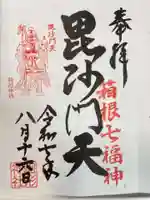 奉拝
箱根七福神
毘沙門天
毘沙門天
令和七年
八月十六日